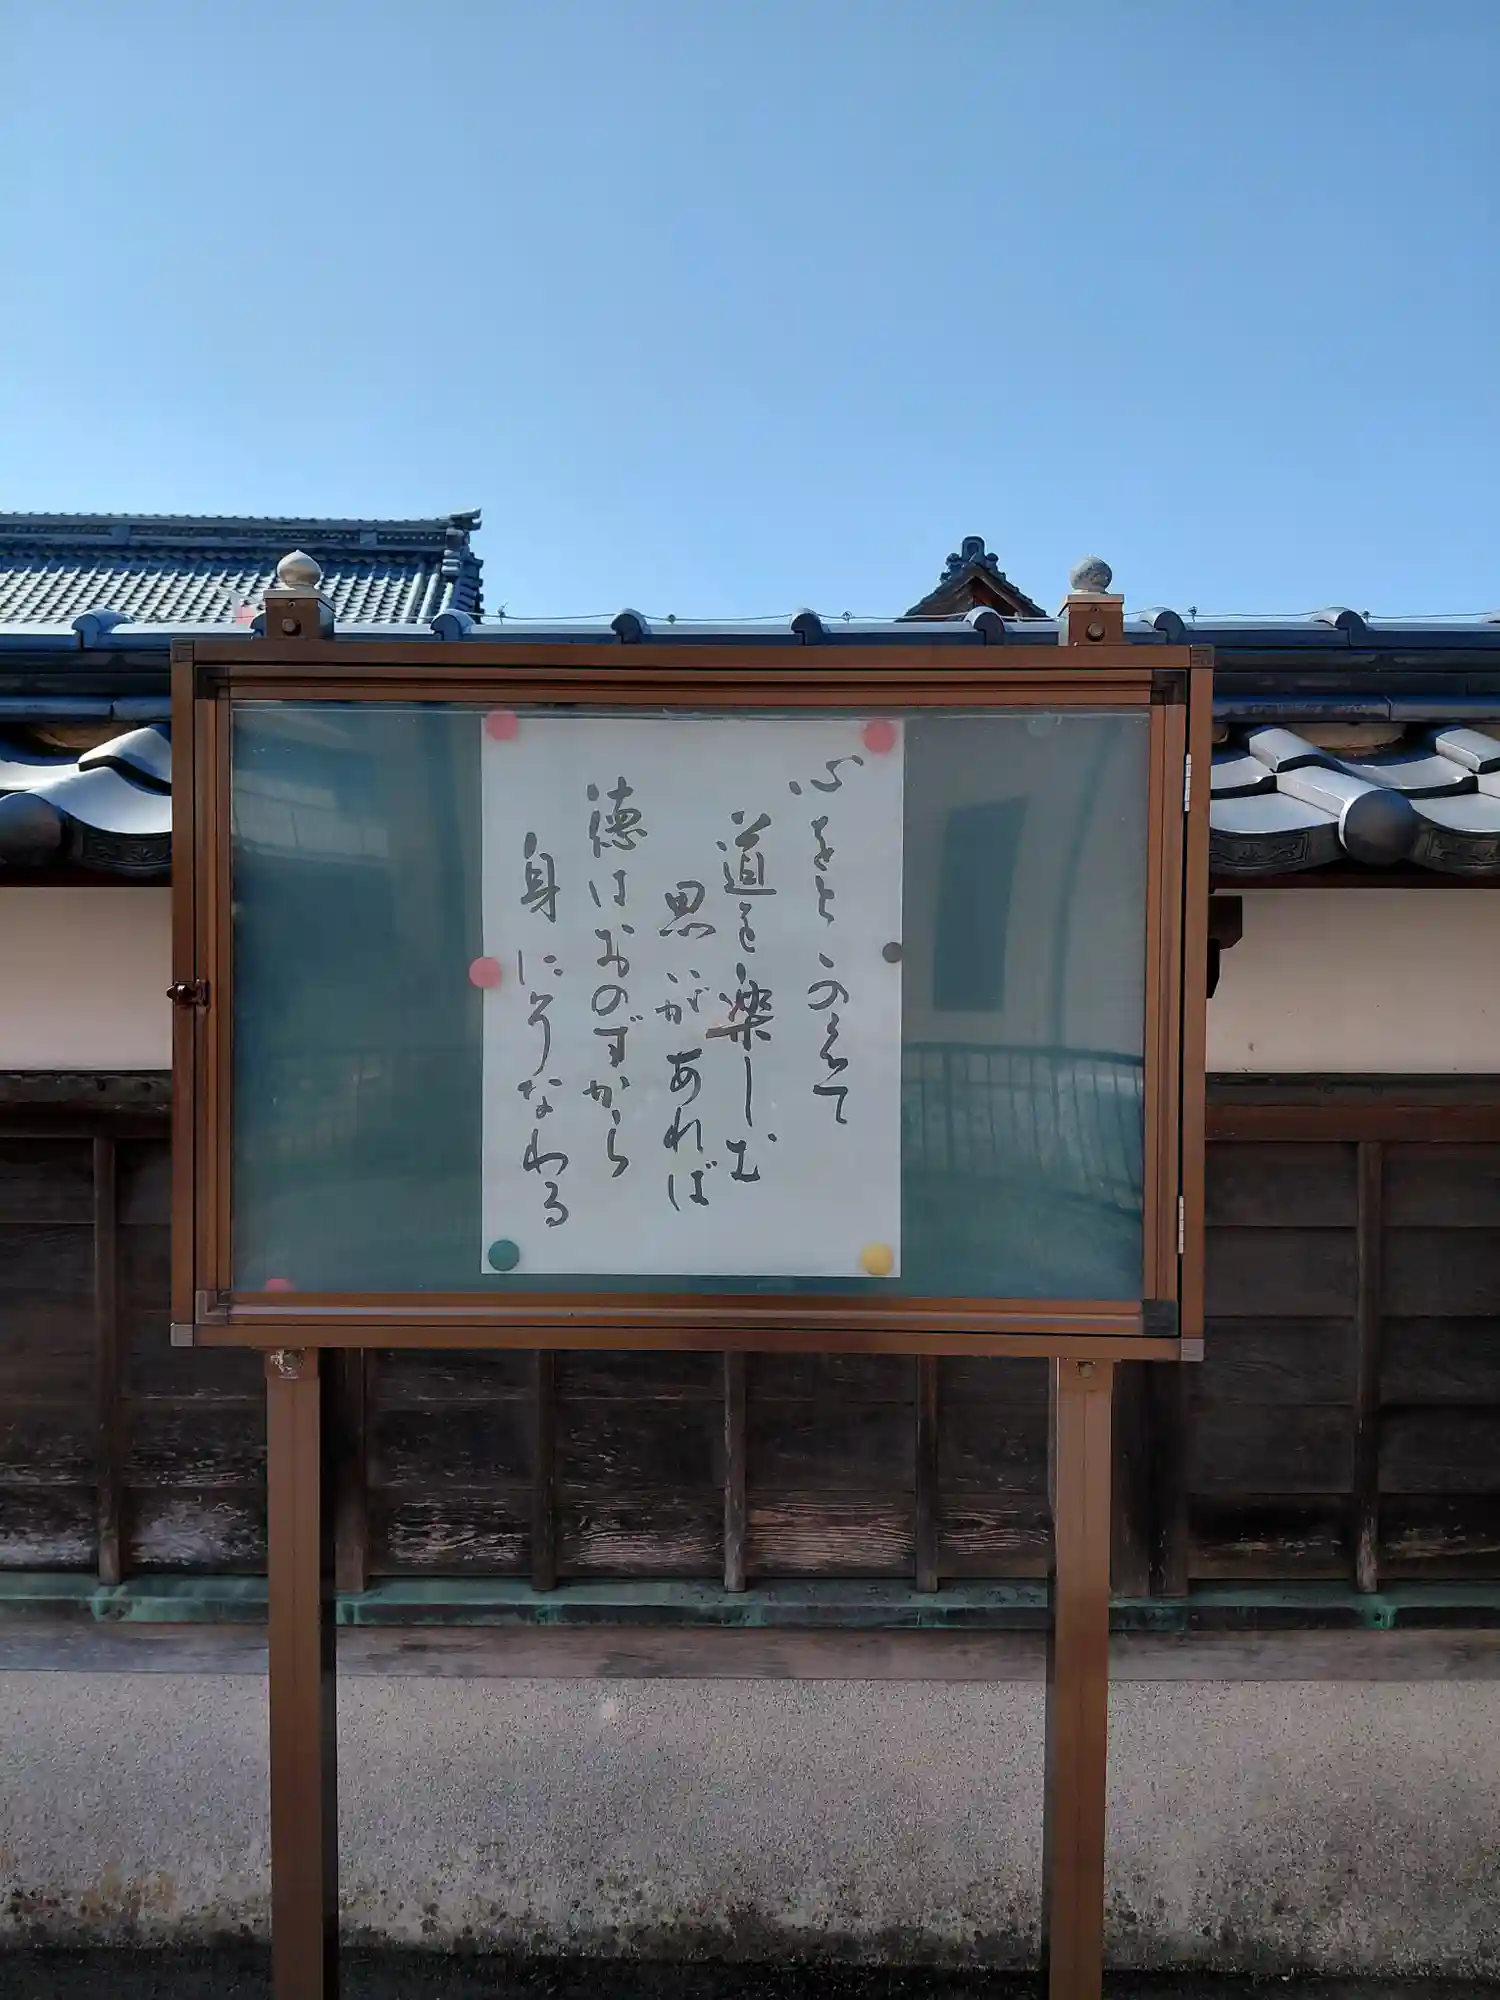 心をとゝのえて
道を楽しむ
思いがあれば
徳はおのずから
身にそなわる